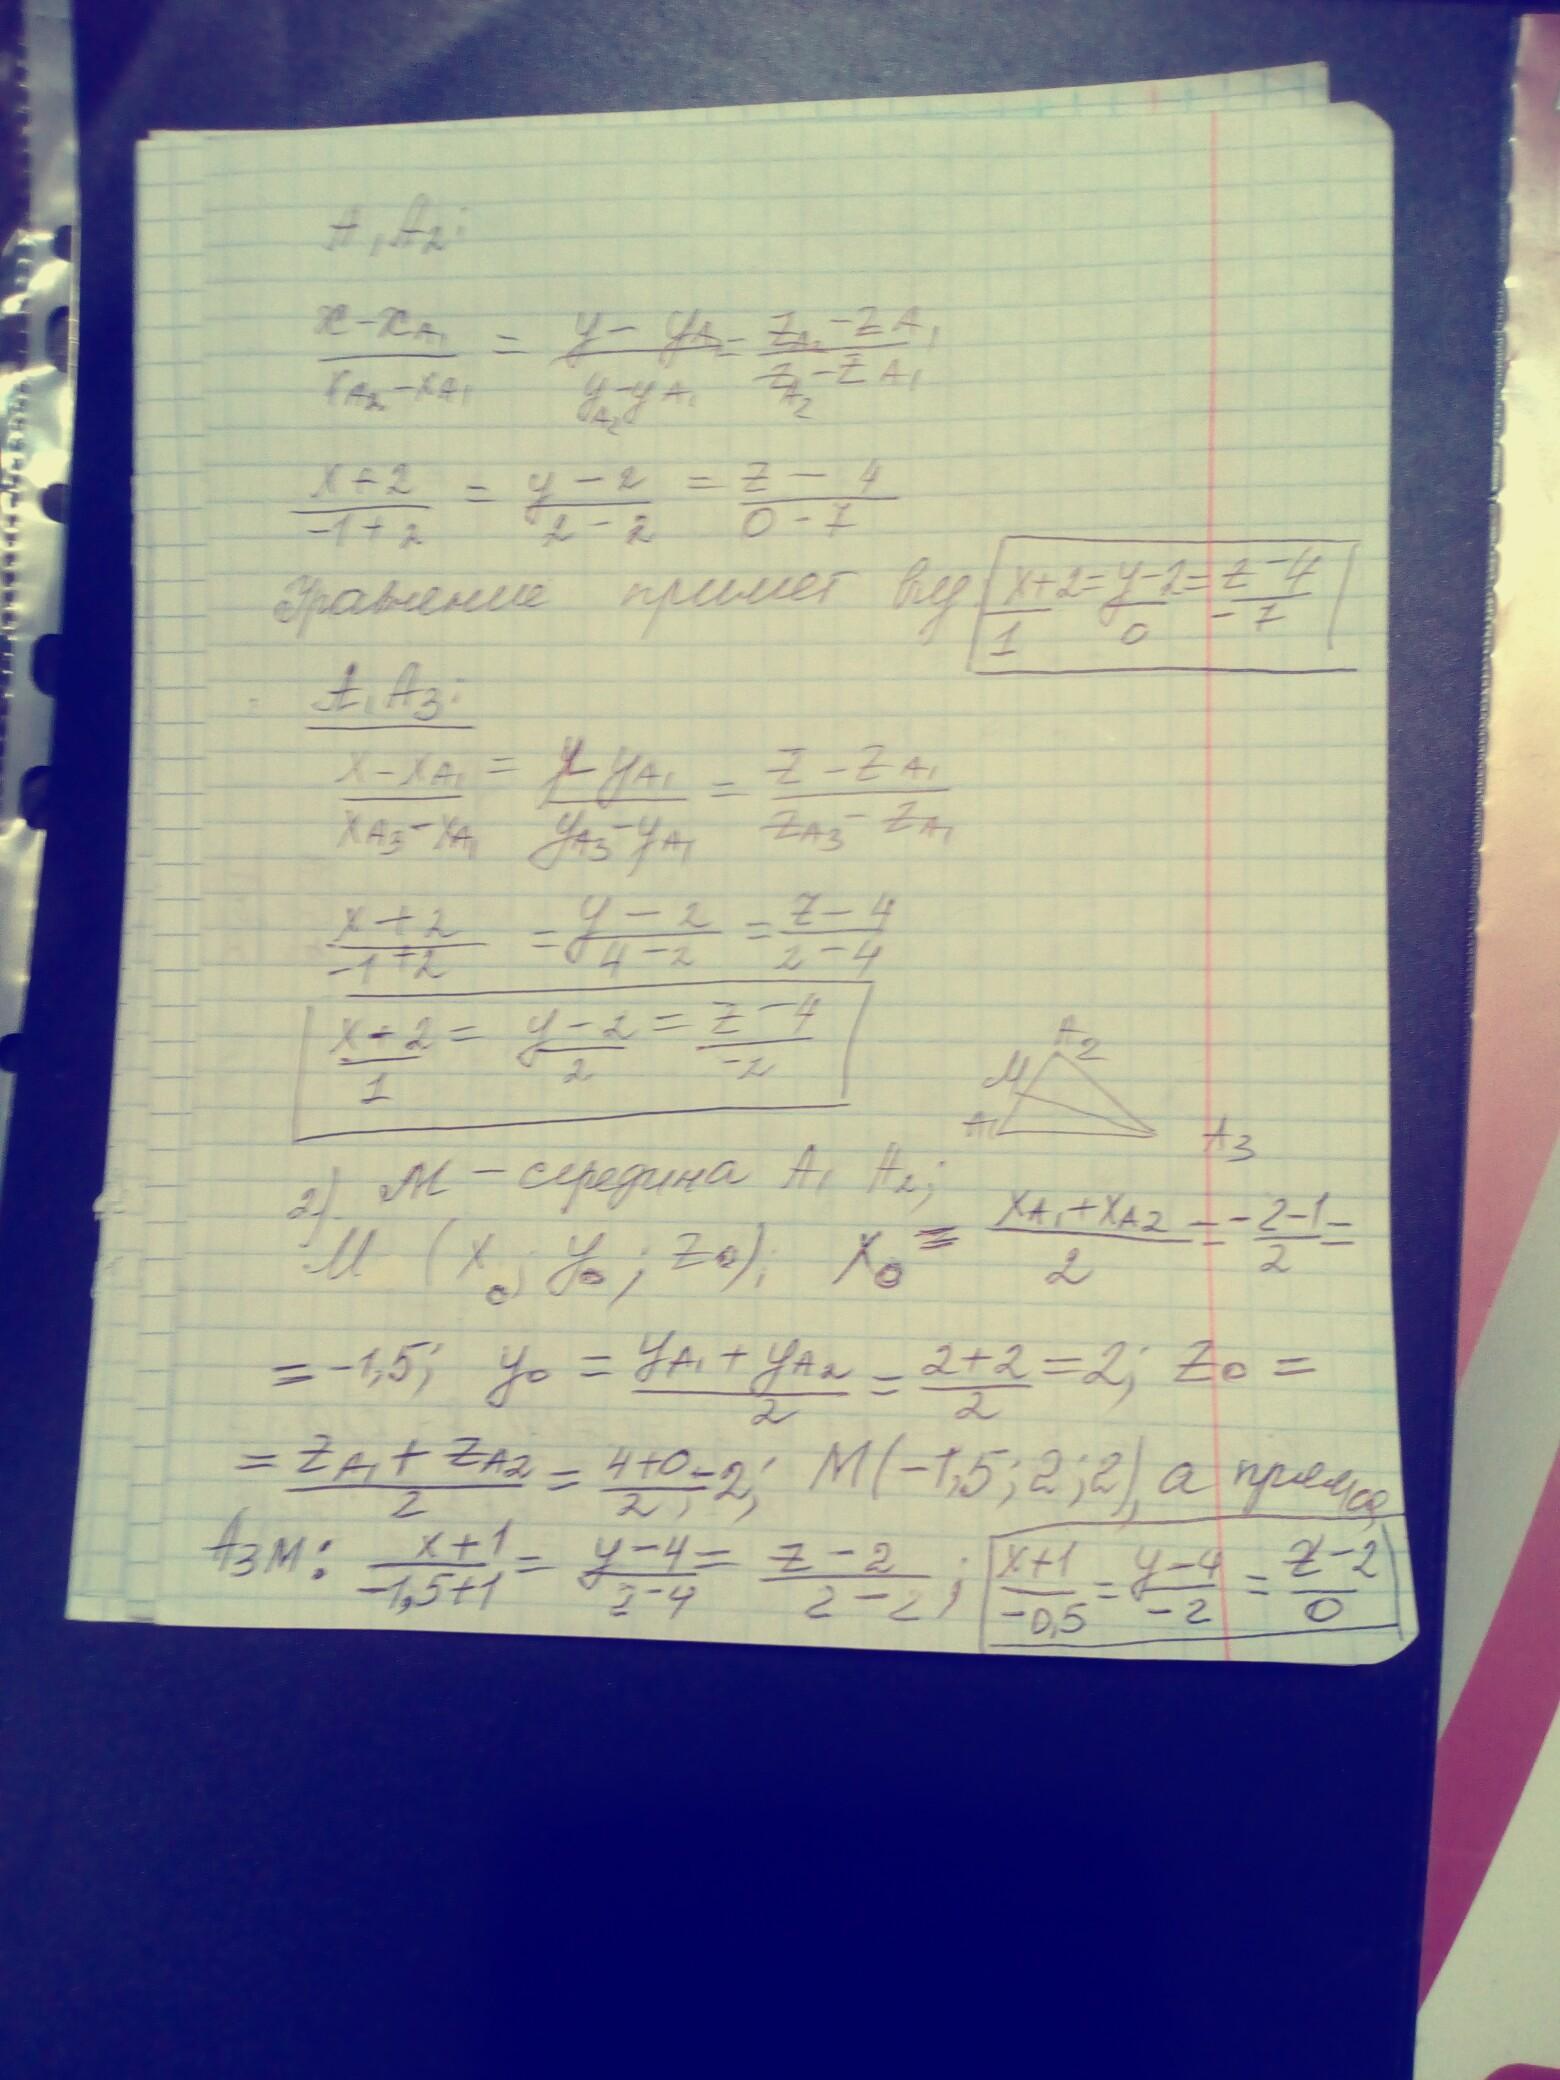 A₁A₂:
(x-x_A₁)/(x_A₂-x_A₁) = (y-y_A)/(y_A₂-y_A₁) = (z_A₂-z_A₁)/(z_A₂-z_A₁)
(x+2)/(-1+2) = (y-2)/(2-2) = (z-4)/(0-7)
Уравнение примет вид (x+2)/1 = (y-2)/0 = (z-4)/-7
A₁A₃:
(x-x_A₁)/(x_A₃-x_A₁) = (y-y_A₁)/(y_A₃-y_A₁) = (z-z_A₁)/(z_A₃-z_A₁)
(x+2)/(-1+2) = (y-2)/(4-2) = (z-4)/(2-4)
(x+2)/1 = (y-2)/2 = (z-4)/-2
A₂
M
A₁ A₃
2) M - середина A₁A₂;
M (x₀; y₀; z₀); x₀ = (x_A₁+x_A₂)/2 = (-2-1)/2 =
= -1,5; y₀ = (y_A₁+y_A₂)/2 = (2+2)/2 = 2; z₀ =
= (z_A₁+z_A₂)/2 = (4+0)/2 = 2; M(-1,5; 2; 2), а прямая
A₃M: (x+1)/(-1,5+1) = (y-4)/(2-4) = (z-2)/(2-2); (x+1)/-0,5 = (y-4)/-2 = (z-2)/0